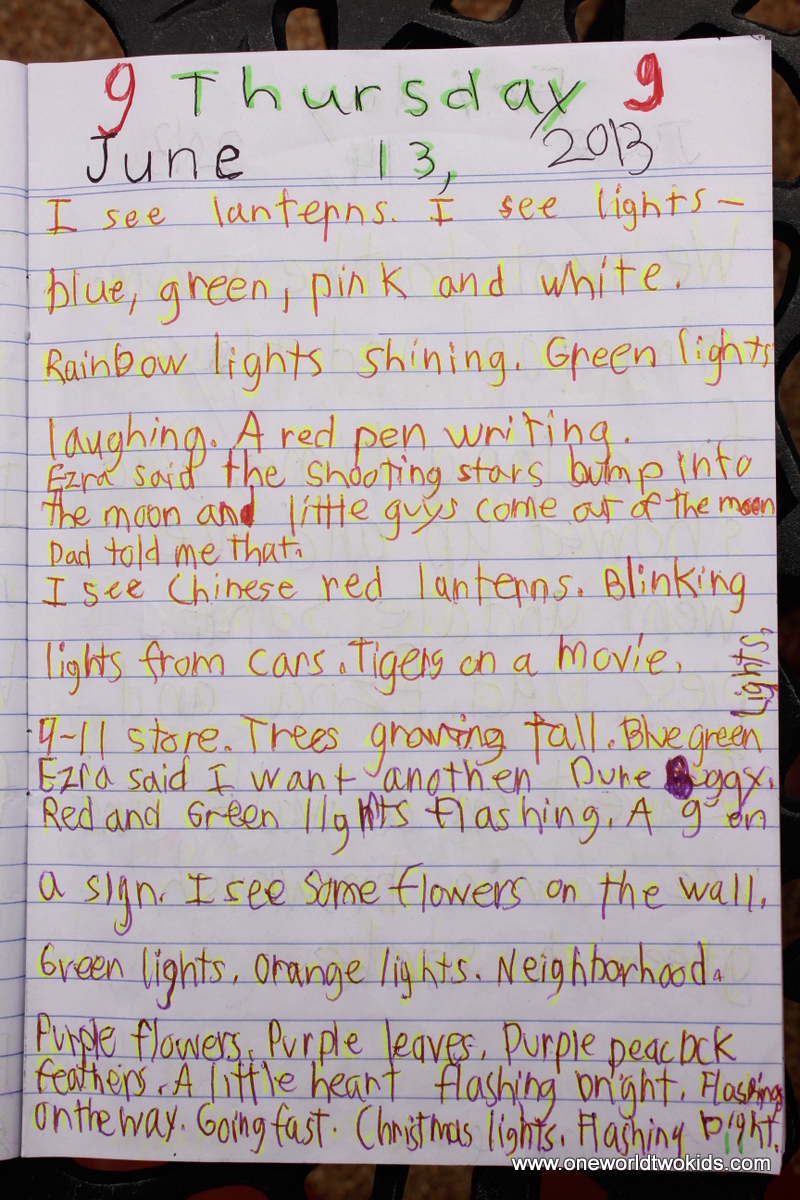 9 Thursday 9
June 13, 2013
I see lanterns. I see lights-
blue, green, pink and white.
Rainbow lights shining. Green lights
laughing. A red pen writing.
Ezra said the shooting stars bump into
the moon and little guys come out of the moon
Dad told me that.
I see Chinese red lanterns. Blinking
lights from cars. Tigers on a movie.
9-11 store. Trees growing tall. Blue green
lights.
Ezra said I want another Dune Buggy.
Red and Green lights flashing. A 9 on
a sign. I see some flowers on the wall.
Green lights. Orange lights. Neighborhood.
Purple flowers. Purple leaves. Purple peacock
feathers. A little heart flashing bright. Flashing
on the way. Going fast. Christmas lights. Flashing bright.
www.oneworldtwokids.com